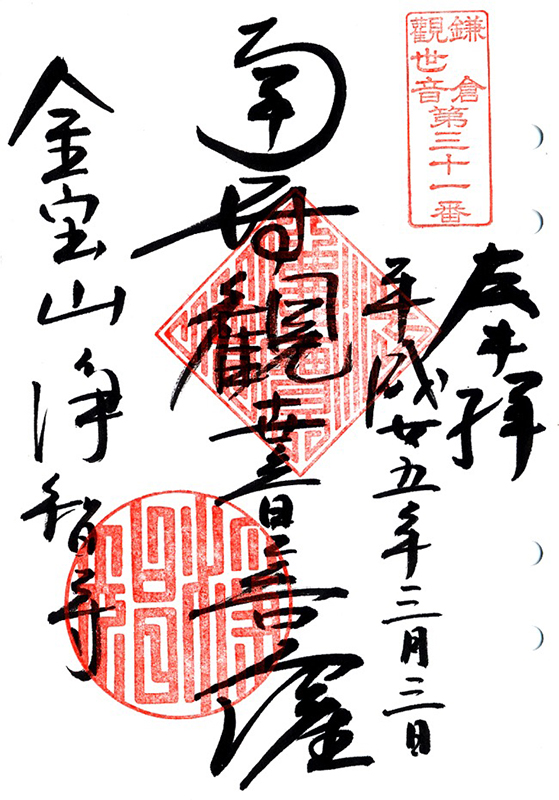 鎌倉
觀世音
第三十一番
奉拝
平成廿五年三月三日
南無觀世音菩薩
金宝山浄智寺